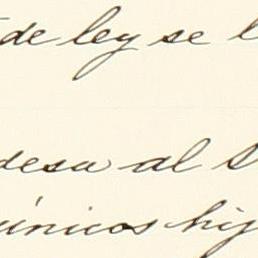 de ley se
desa al
únicos hij